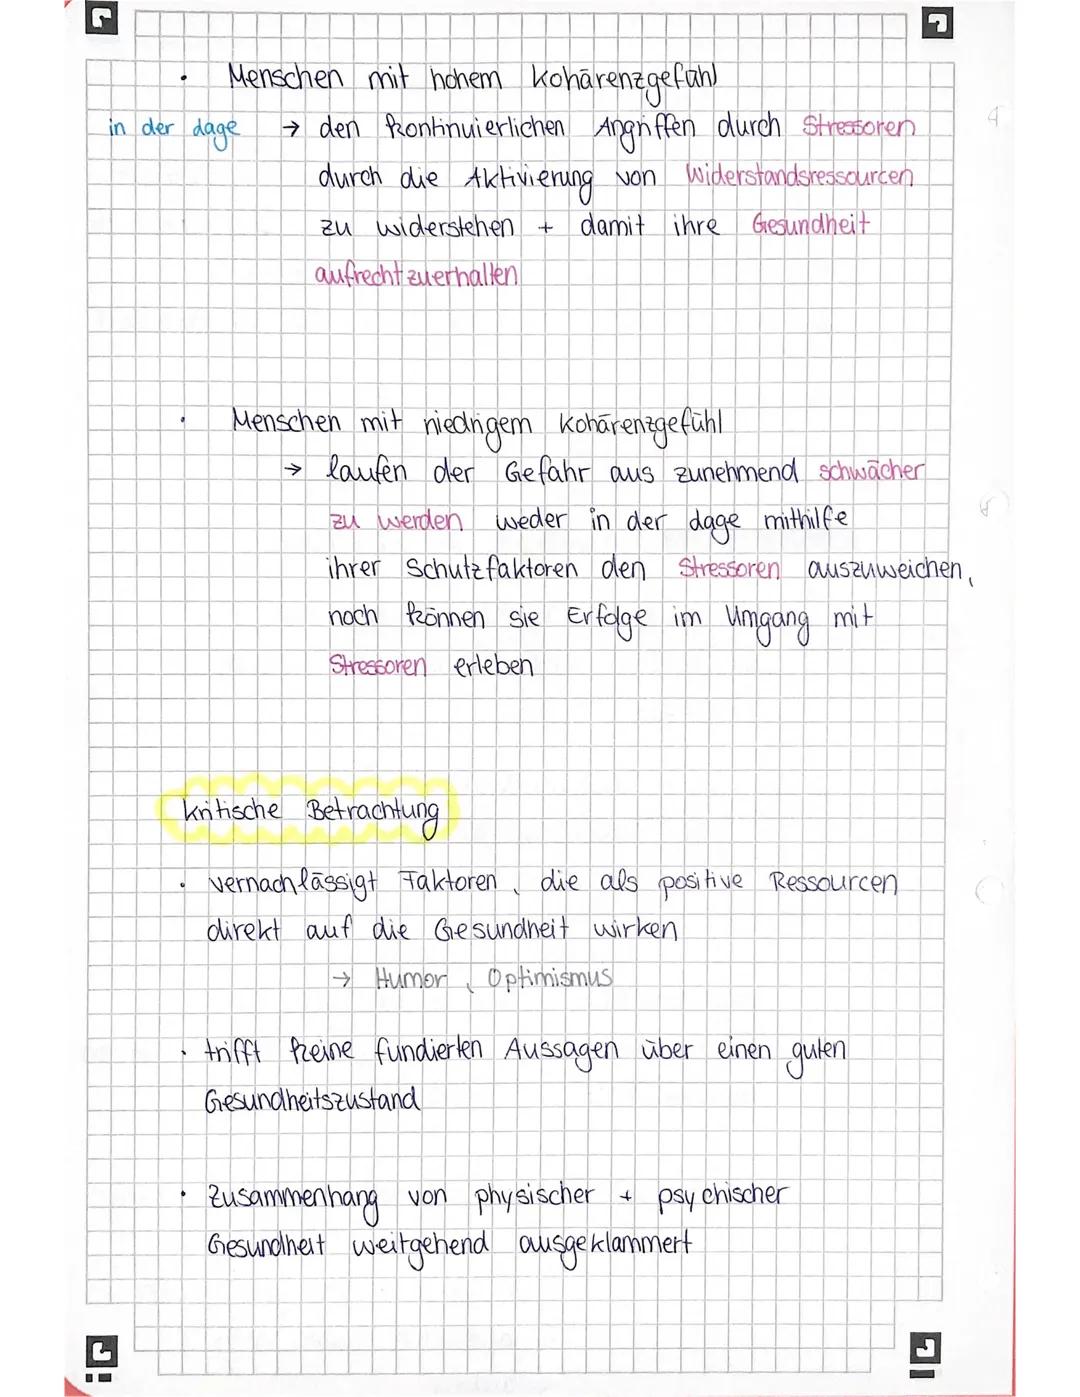 • Menschen mit hohem Kohärenzgefühl
in der Lage → den kontinuierlichen Angriffen durch Stressoren
durch die Aktivierung von Widerstandsressourcen
zu widerstehen + damit ihre Gesundheit
aufrechtzuerhalten
• Menschen mit niedrigem Kohärenzgefühl
→ laufen der Gefahr aus zunehmend schwächer
zu werden weder in der Lage mithilfe
ihrer Schutzfaktoren den Stressoren auszuweichen,
noch können sie Erfolge im Umgang mit
Stressoren erleben
Kritische Betrachtung
• vernachlässigt Faktoren, die als positive Ressourcen
direkt auf die Gesundheit wirken
→ Humor, Optimismus
• trifft keine fundierten Aussagen über einen guten
Gesundheitszustand
• Zusammenhang von physischer + psychischer
Gesundheit weitgehend ausgeklammert